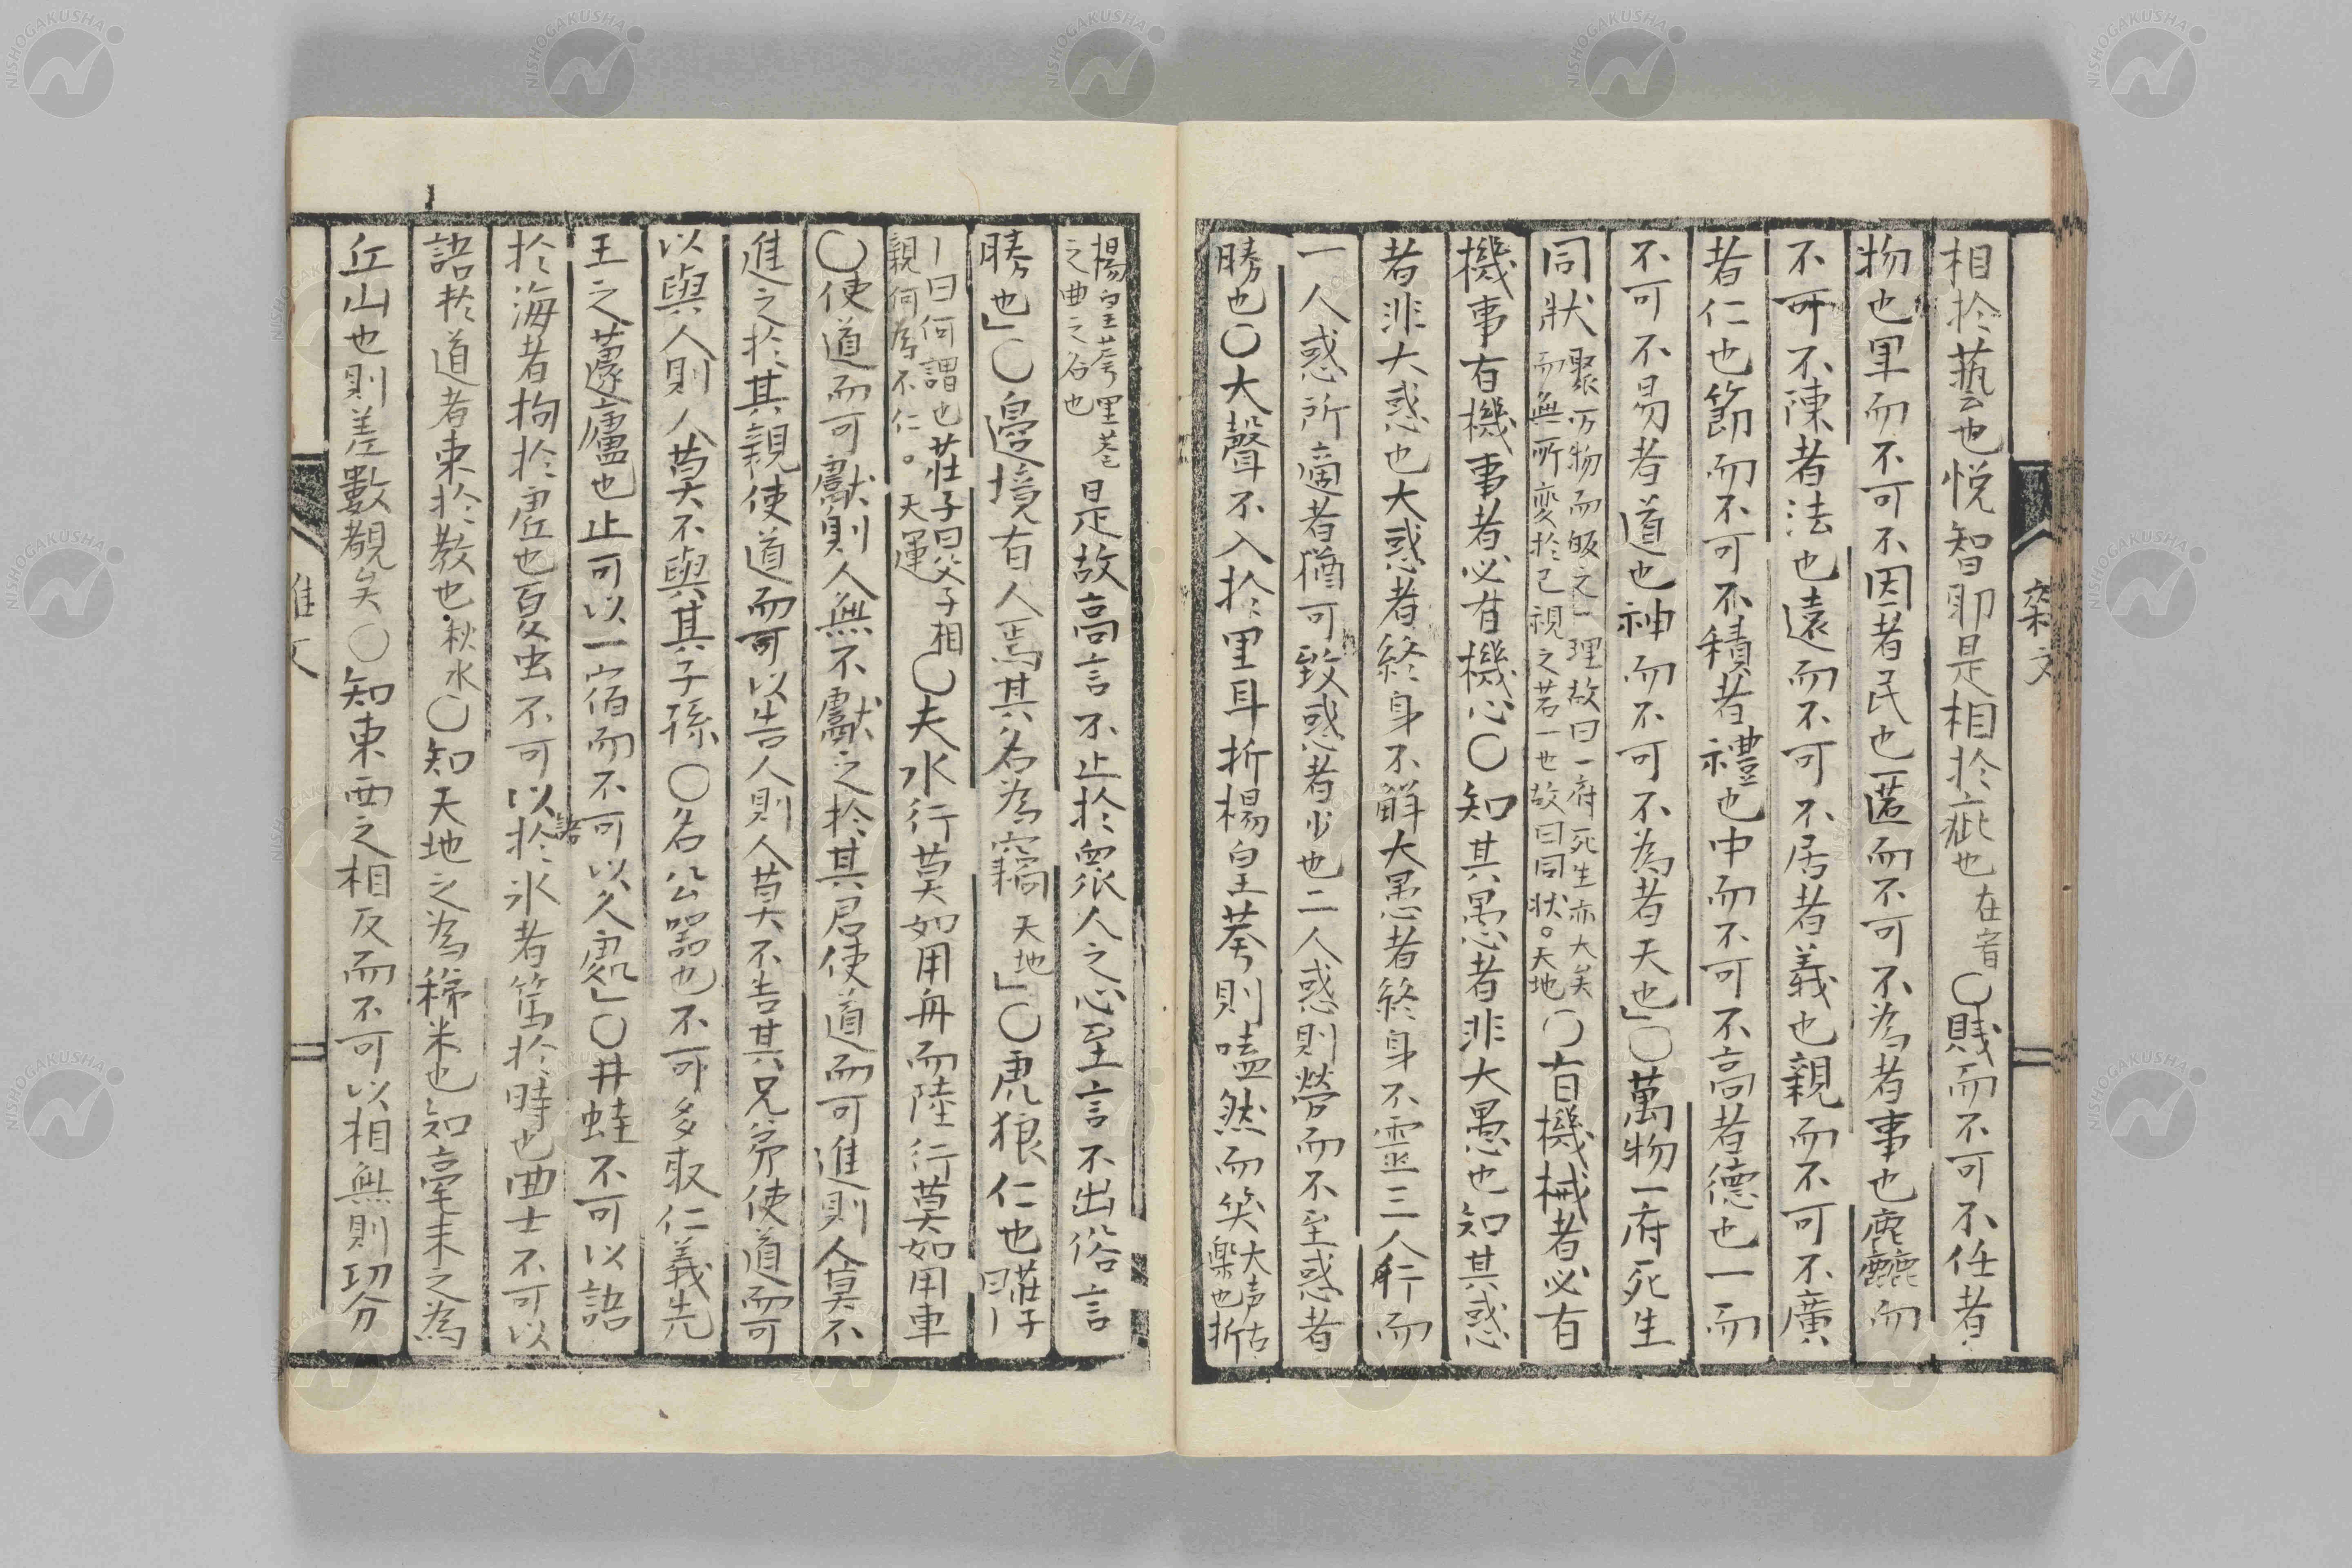 雜文
相於藝也悦智耶是相於疵也在宥〇賤而不可不任者
物也卑而不可不因者民也匿而不可不為者事也麁而
不可不陳者法也遠而不可不居者義也親而不可不廣
者仁也節而不可不積者禮也中而不可不高者德也一而
不可不易者道也神而不可不為者天也」〇萬物一府死生
同狀聚万物而皈之一理故曰一府死生亦大矣
而無所変於己視之若一也故曰同狀。天地〇有機械者必有
機事有機事者必有機心〇知其愚者非大愚也知其惑
者非大惑也大惑者終身不解大愚者終身不靈三人行而
一人惑所適者猶可致惑者少也二人惑則勞而不至惑者
勝也〇大聲不入於里耳折楊皇荂則嗑然而笑大声古
楽也折
楊皇荂里巷
之曲之名也是故高言不止於衆人之心至言不出俗言
勝也」〇邉境有人焉其名為竊天地」〇虎狼仁也曰莊子
曰何謂也莊子曰父子相
親何為不仁。天運〇夫水行莫如用舟而陸行莫如用車
〇使道而可獻則人無不獻之於其君使道而可進則人莫不
進之於其親使道而可以告人則人莫不告其兄弟使道而可
以與人則人莫不與其子孫〇名公器也不可多取仁義先
王之蘧廬也止可以一宿而不可以久處」〇井蛙不可以語
於海者拘於虗也夏虫不可以語於氷者篤於時也曲士不可以
語於道者束於教也秋水〇知天地之為稊米也知毫末之為
丘山也則差數覩矣〇知東西之相反而不可以相無則功分
雜文